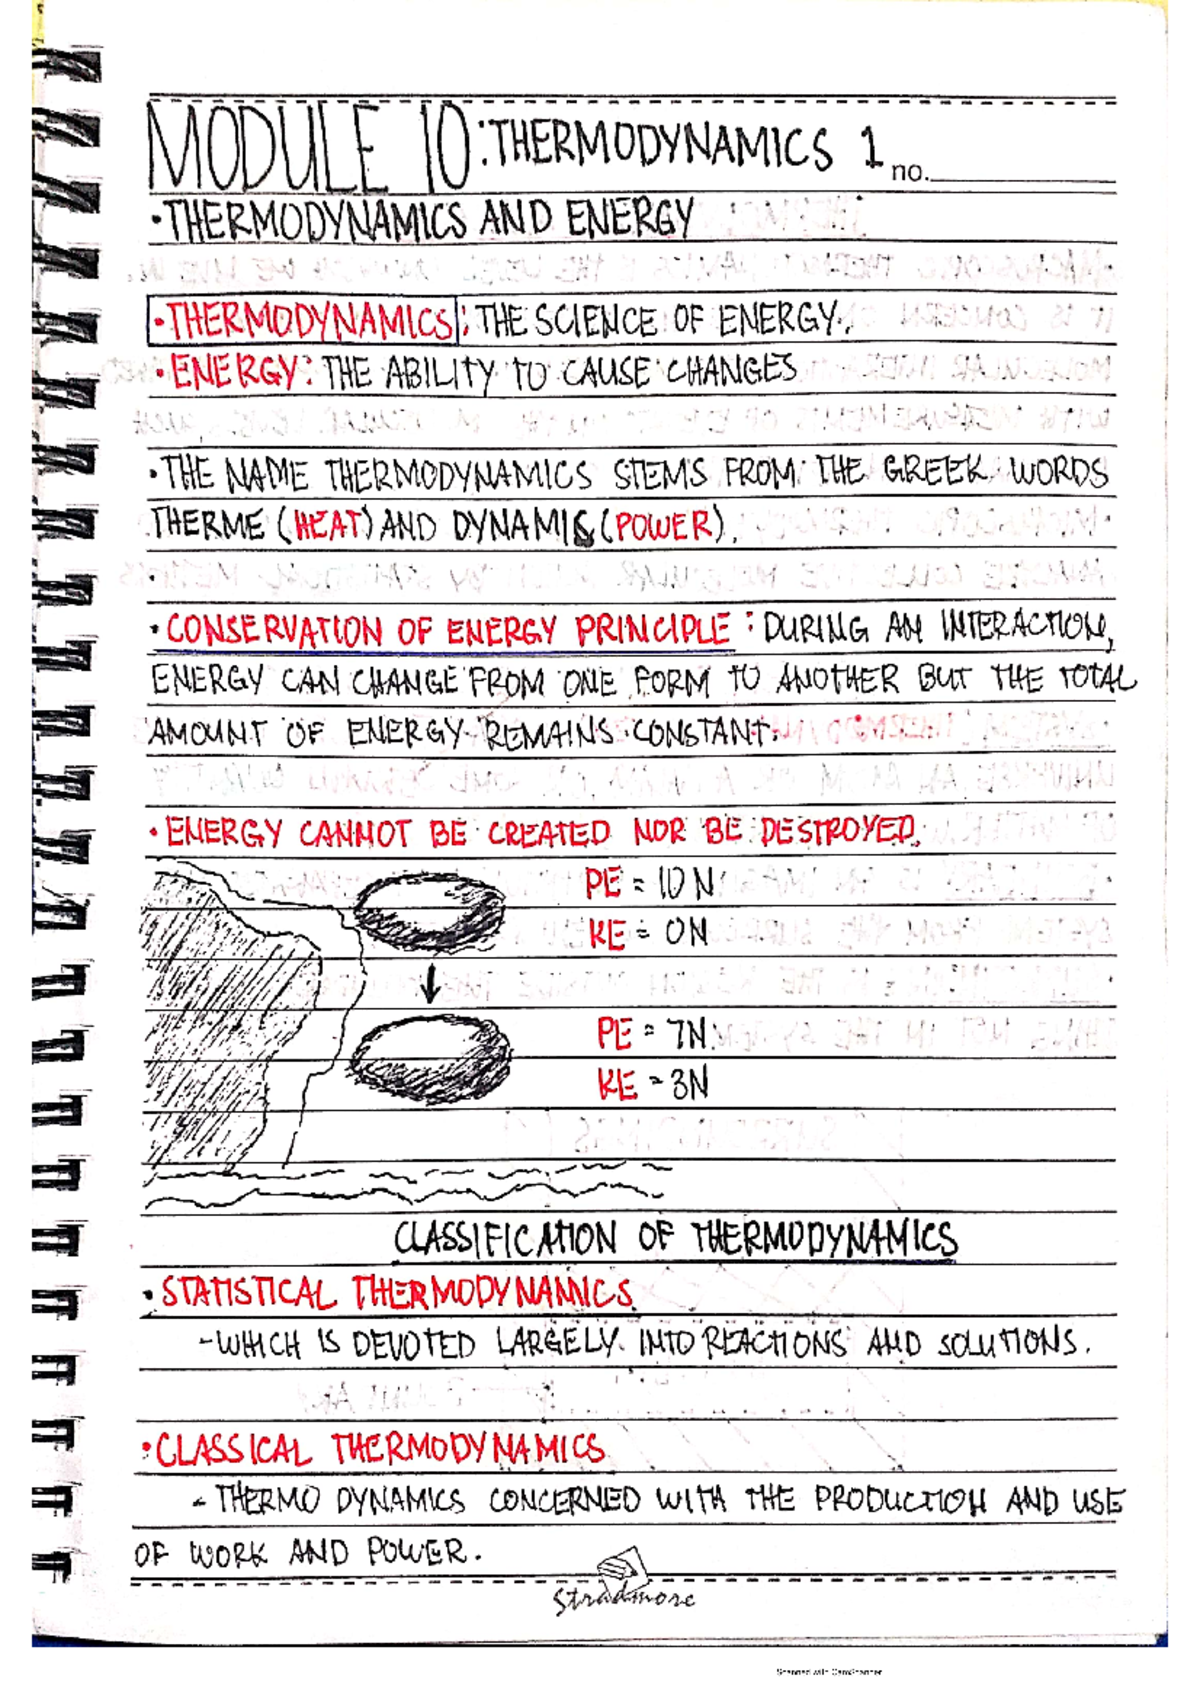 MODULE 10: THERMODYNAMICS 1 no.
• THERMODYNAMICS AND ENERGY
• THERMODYNAMICS: THE SCIENCE OF ENERGY.
• ENERGY: THE ABILITY TO CAUSE CHANGES
• THE NAME THERMODYNAMICS STEMS FROM THE GREEK WORDS
THERME (HEAT) AND DYNAMIS (POWER).
• CONSERVATION OF ENERGY PRINCIPLE: DURING AN INTERACTION,
ENERGY CAN CHANGE FROM ONE FORM TO ANOTHER BUT THE TOTAL
AMOUNT OF ENERGY REMAINS CONSTANT.
• ENERGY CANNOT BE CREATED NOR BE DESTROYED.
PE = 10 N
KE = 0N
PE = 7N
KE = 3N
CLASSIFICATION OF THERMODYNAMICS
• STATISTICAL THERMODYNAMICS
- WHICH IS DEVOTED LARGELY INTO REACTIONS AND SOLUTIONS.
• CLASSICAL THERMODYNAMICS
- THERMO DYNAMICS CONCERNED WITH THE PRODUCTION AND USE
OF WORK AND POWER.
Stradmore
Scanned with CamScanner